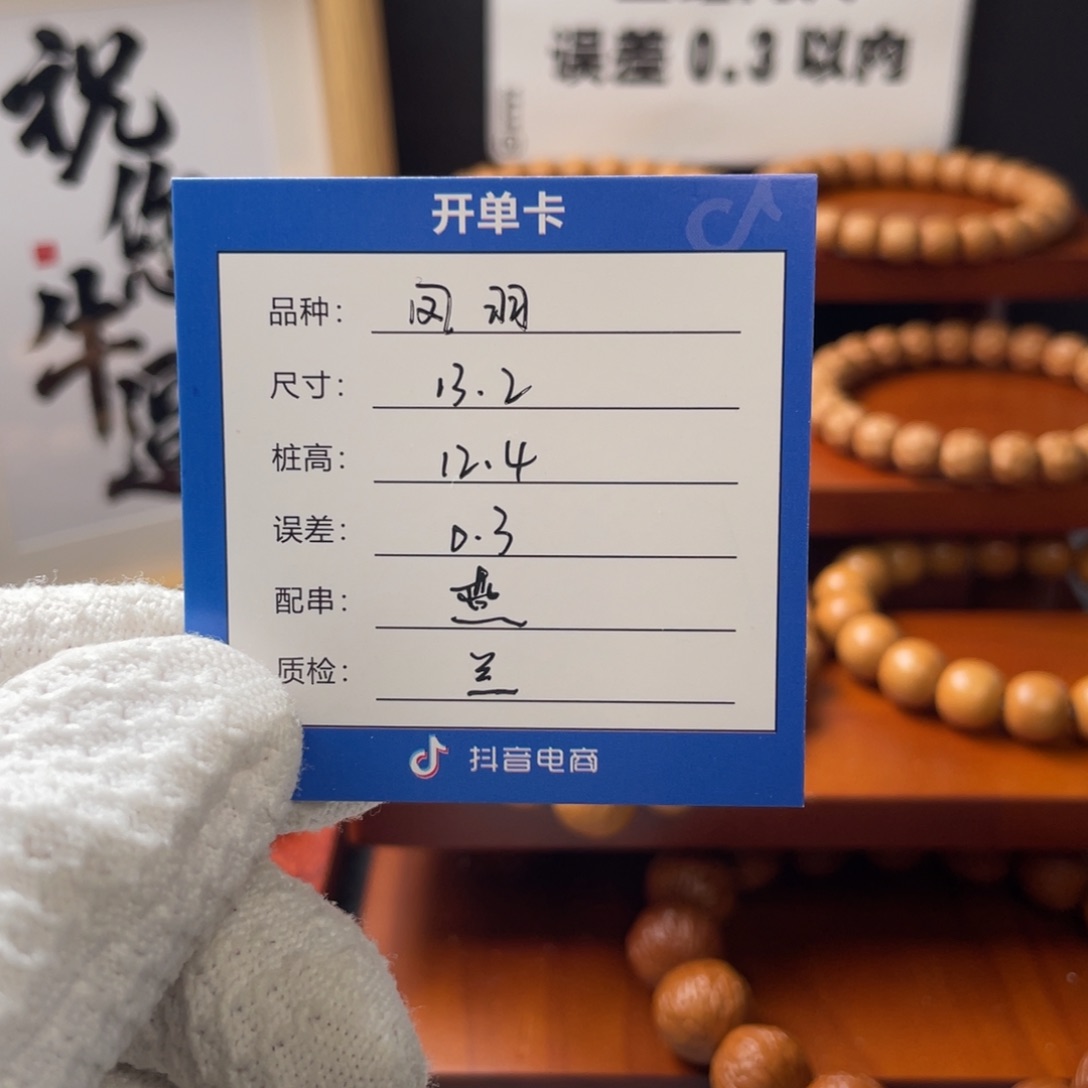 误差0.3以内
祝
您
牛
运
开单卡
品种: 闵羽
尺寸: 13.2
桩高: 12.4
误差: 0.3
配串: 热
质检: 兰
抖音电商